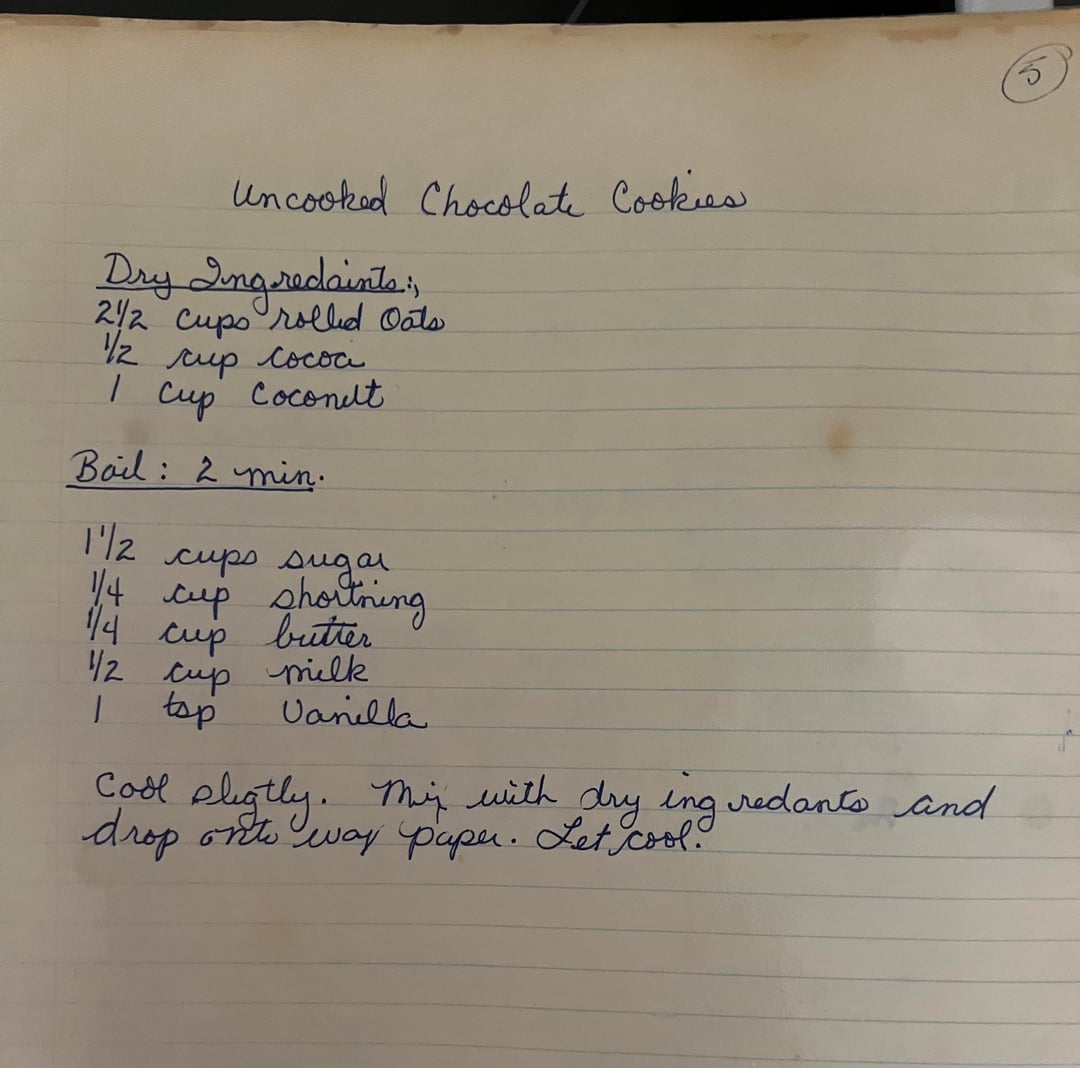 5
Uncooked Chocolate Cookies
Dry Ingredaints:,
2 1/2 cups rolled Oats
1/2 cup cocoa
1 Cup Coconut
Boil: 2 min.
1 1/2 cups sugar
1/4 cup shortning
1/4 cup butter
1/2 cup milk
1 tsp Vanilla
Cool sligtly. Mix with dry ingredants and
drop onto wax paper. Let cool.